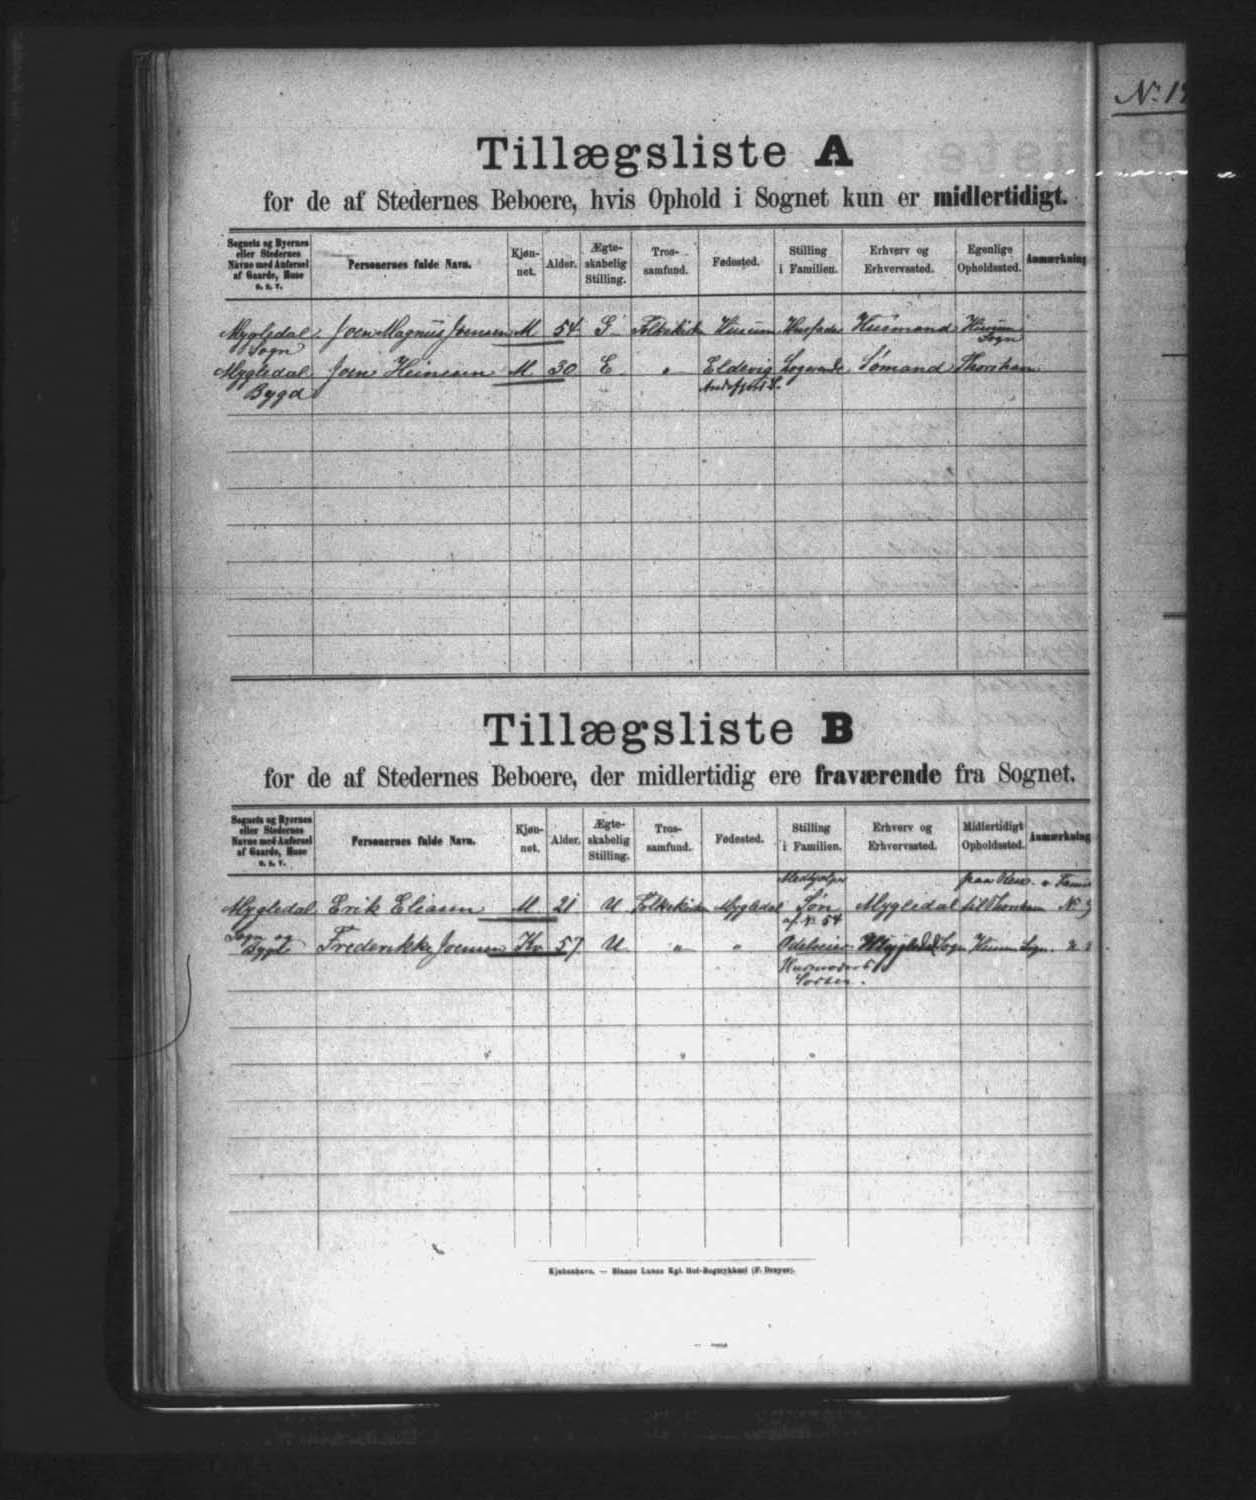 N: 1
Tillægsliste A
for de af Stedernes Beboere, hvis Ophold i Sognet kun er midlertidigt.
Sognets og Byernes eller Stedernes Navne med Anførsel af Gaarde, Huse o. s. v.
Personernes fulde Navn.
Kjøn-net.
Alder.
Ægte-skabelig Stilling.
Tros-samfund.
Fødested.
Stilling i Familien.
Erhverv og Erhvervssted.
Egenlige Opholdssted.
Anmærkning
Mygledal Sogn Joen Magnus Joensen M 54 G Folkekirken Husum Husfader Husmand Husum Sogn
Mygledal Bygd Joen Heinesen M. 30 E " Eldevig Andefjord S. Logerende Sømand Thorshavn
Tillægsliste B
for de af Stedernes Beboere, der midlertidig ere fraværende fra Sognet.
Sognets og Byernes eller Stedernes Navne med Anførsel af Gaarde, Huse o. s. v.
Personernes fulde Navn.
Kjøn-net.
Alder.
Ægte-skabelig Stilling.
Tros-samfund.
Fødested.
Stilling i Familien.
Erhverv og Erhvervssted.
Midlertidigt Opholdssted.
Anmærkning
Mygledal Erik Eliasen M 21 U Folkekirken Mygledal Medhjelper Søn af No 54 Mygledal paa Reise til Thorshavn
Sogn og Bygd Frederikke Joensen Kv 57 U " " Husmoders Søster. Sogn Husum Sogn.
Kjøbenhavn. — Bianco Lunos Kgl. Hof-Bogtrykkeri (F. Dreyer).